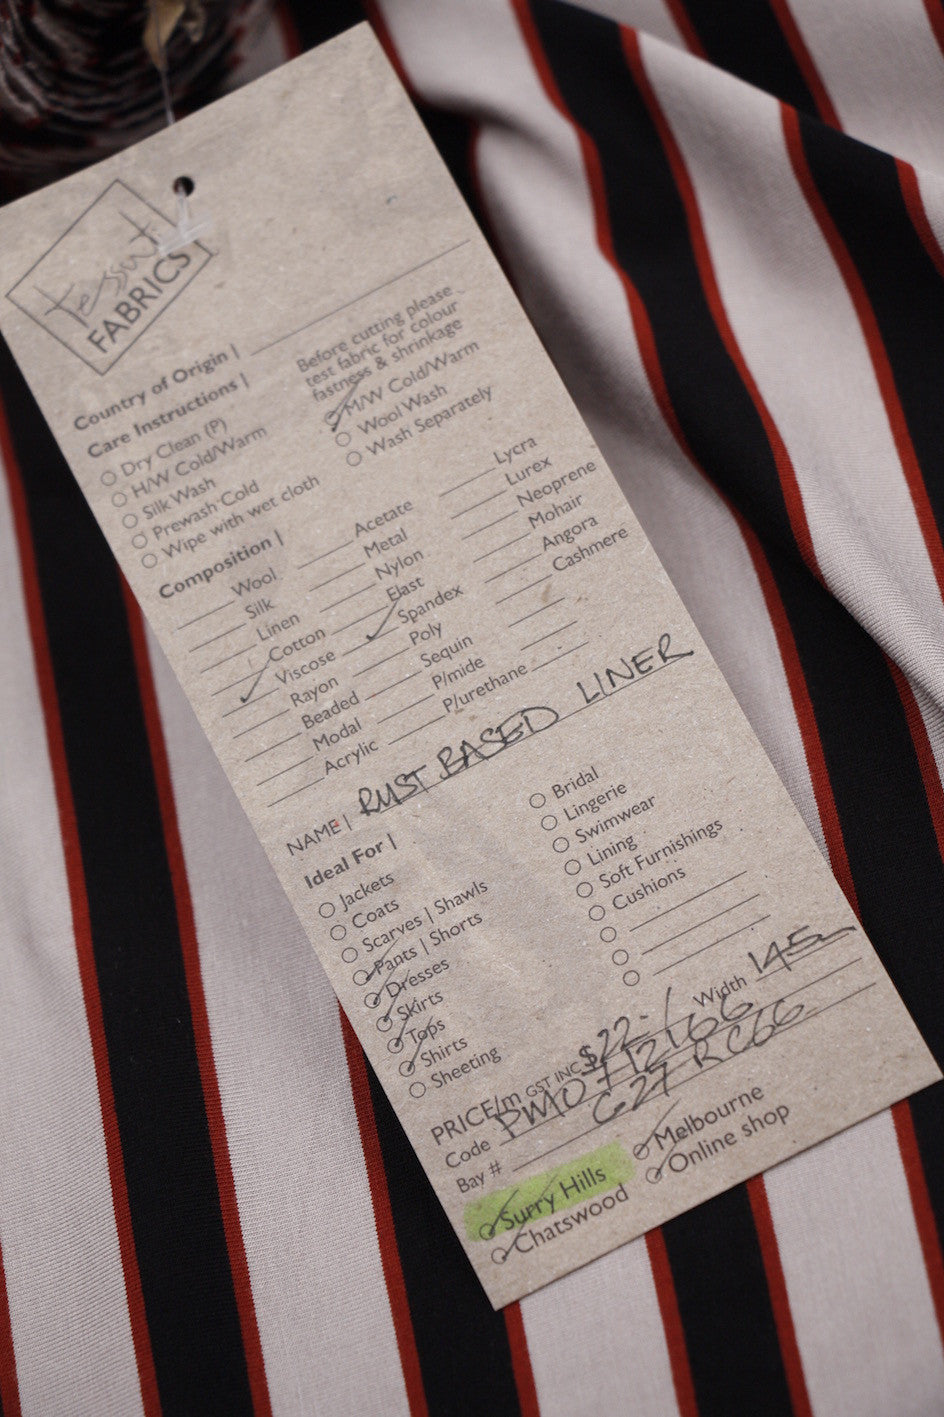 tessuti
FABRICS
Country of Origin |
Care Instructions |
Before cutting please
test fabric for colour
fastness & shrinkage
Dry Clean (P)
H/W Cold/Warm
Silk Wash
Prewash Cold
Wipe with wet cloth
M/W Cold/Warm
Wool Wash
Wash Separately
Composition |
Wool
Silk
Linen
Cotton
Viscose
Rayon
Beaded
Modal
Acrylic
Acetate
Metal
Nylon
Elast
Spandex
Poly
Sequin
P/mide
P/urethane
Lycra
Lurex
Neoprene
Mohair
Angora
Cashmere
NAME | RUST BASED LINER
Ideal For |
Jackets
Coats
Scarves | Shawls
Pants | Shorts
Dresses
Skirts
Tops
Shirts
Sheeting
Bridal
Lingerie
Swimwear
Lining
Soft Furnishings
Cushions
PRICE/m GST INC $22.- Width 145
Code
Bay # G27 RC66
Surry Hills
Chatswood
Melbourne
Online shop